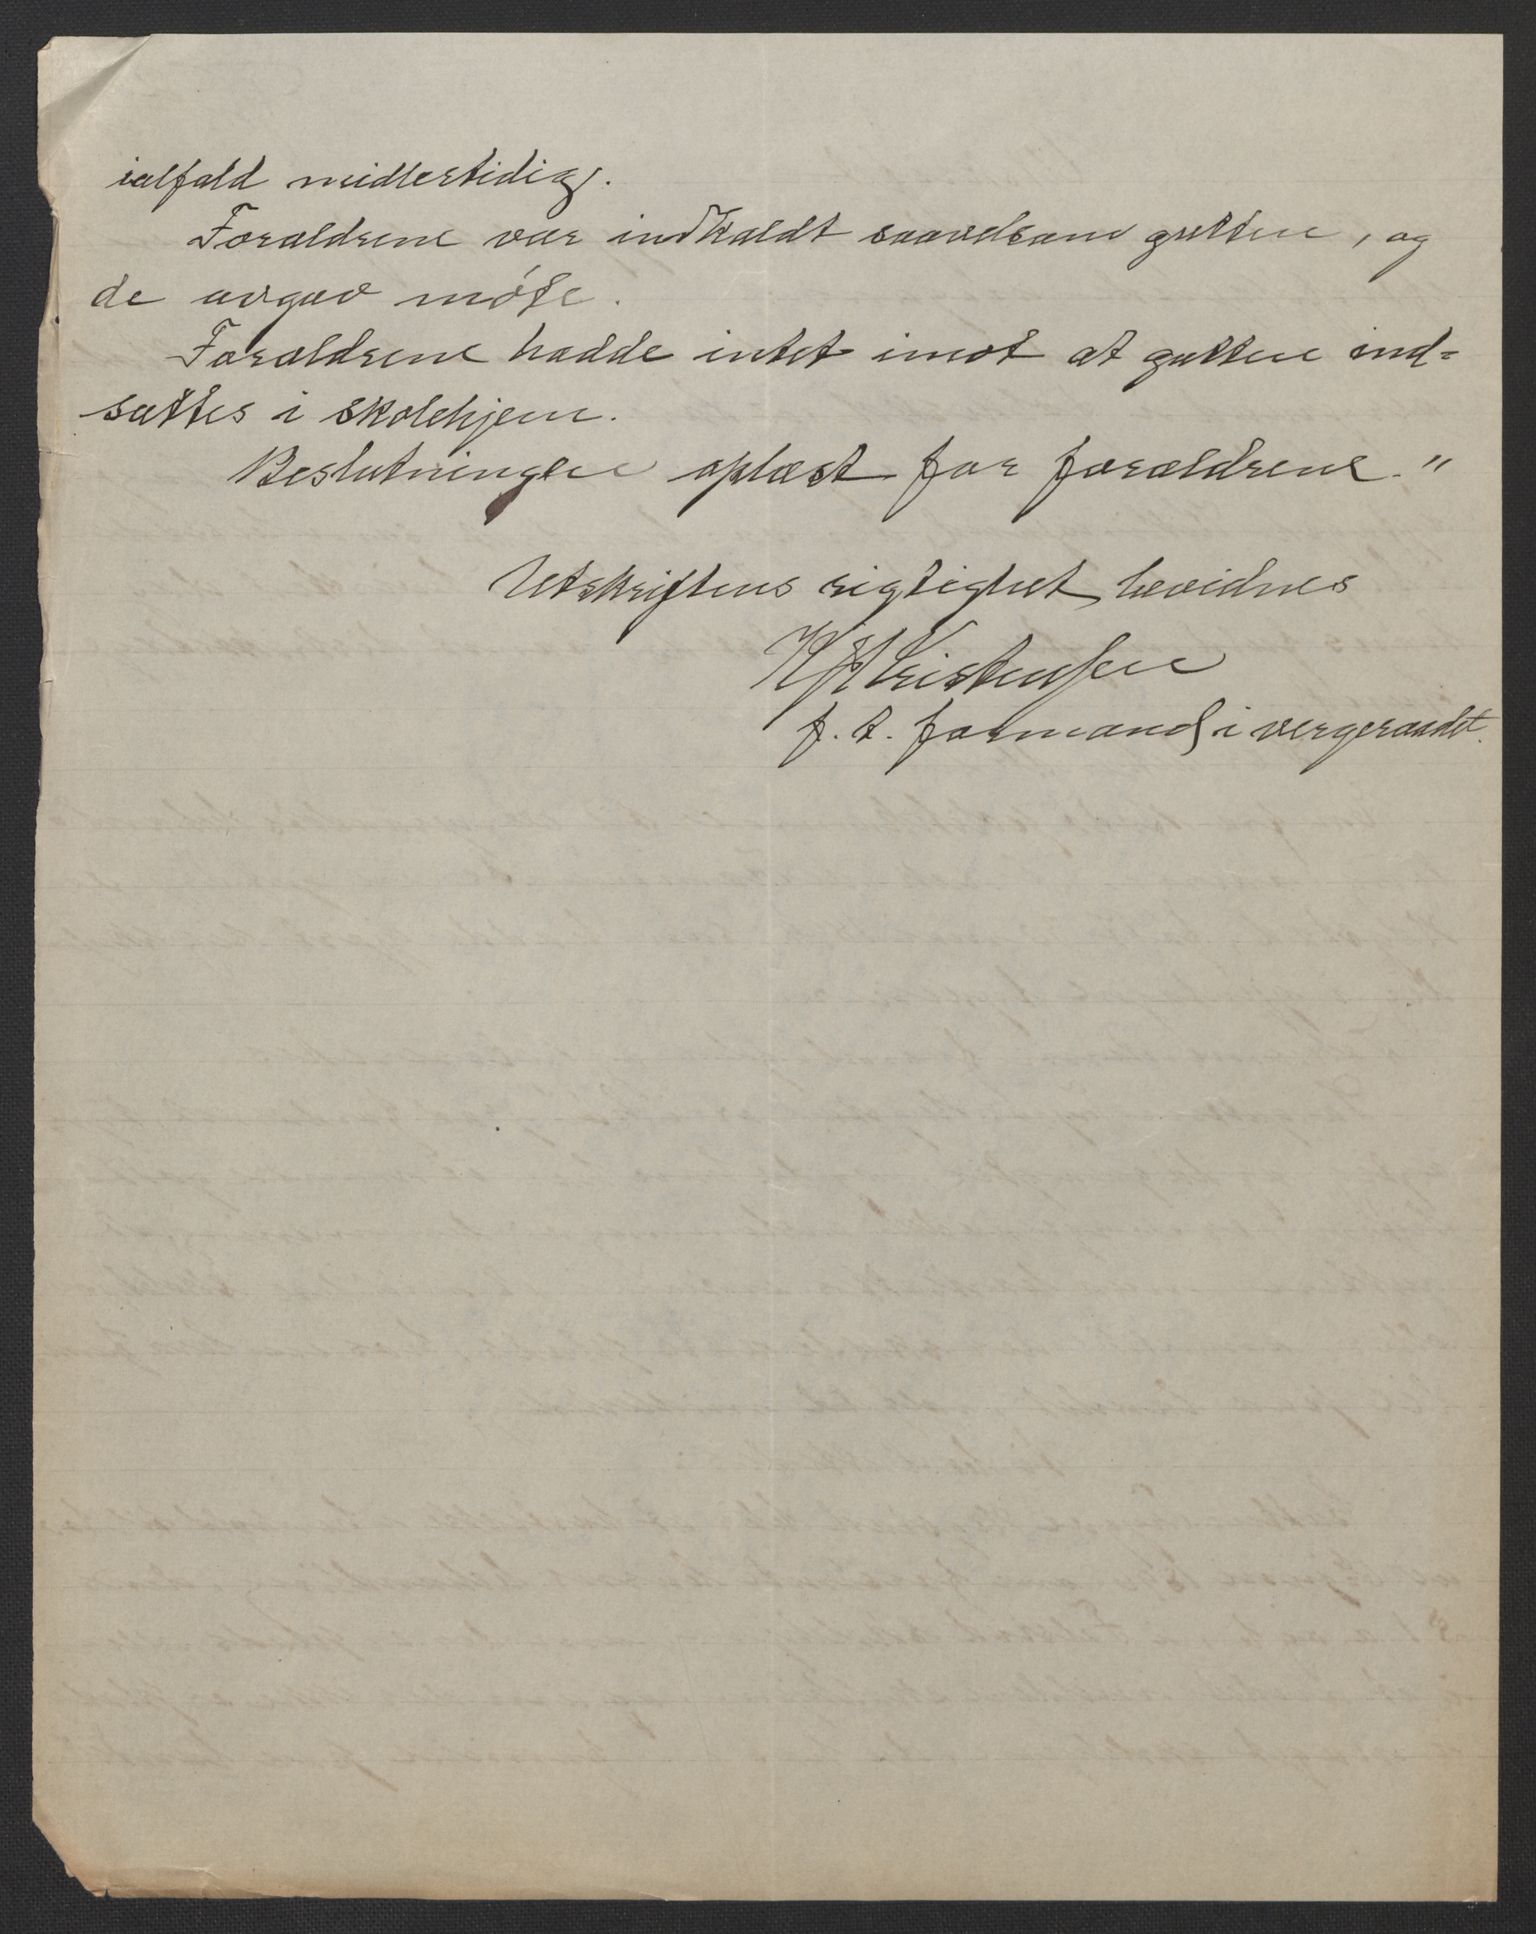 ialfald midlertidig.
Forældrene var indkaldt saavelsom gutten, og
de avgav møte.
Forældrene hadde intet imot at gutten ind=
sættes i skolehjem.
Beslutningen oplæst for forældrene."
Utskriftens rigtighet bevidnes
Kristensen
f. t. formand i vergeraadet.